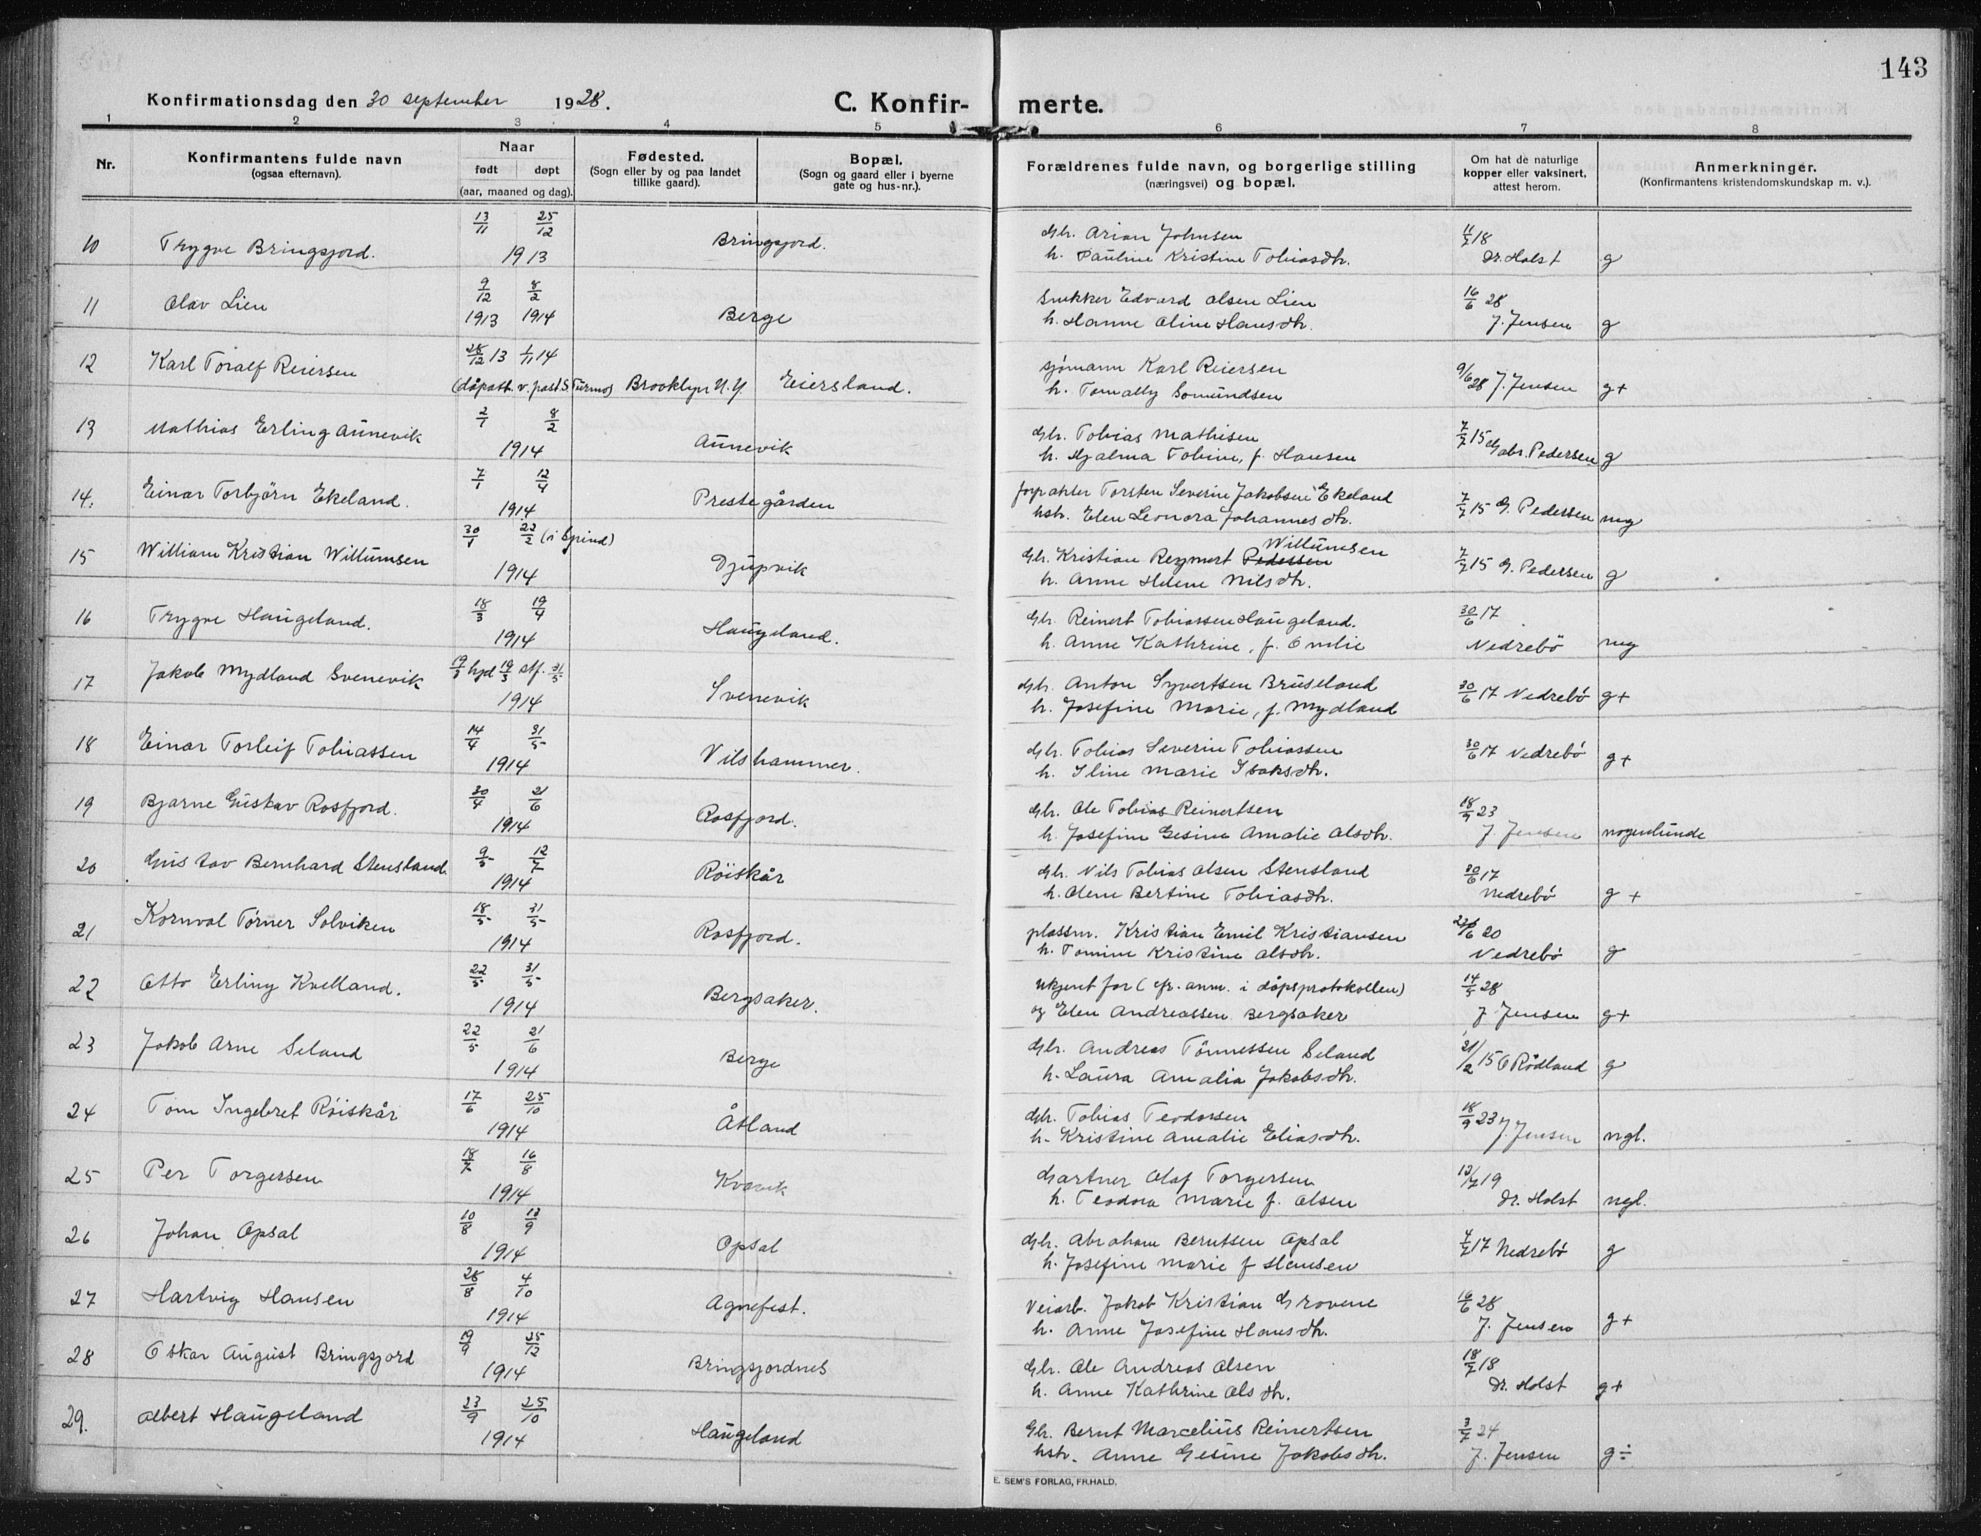 143
Konfirmationsdag den 30 september 1928.
C. Konfir- merte.
1 2 3 4 5 6 7 8
Nr.
Konfirmantens fulde navn
(ogsaa efternavn).
Naar
født døpt
(aar, maaned og dag).
Fødested.
(Sogn eller by og paa landet
tillike gaard).
Bopæl.
(Sogn og gaard eller i byerne
gate og hus-nr.).
Forældrenes fulde navn, og borgerlige stilling
(næringsvei) og bopæl.
Om hat de naturlige
kopper eller vaksinert,
attest herom.
Anmerkninger.
(Konfirmantens kristendomskundskap m. v.).
10 Trygve Bringsjord. 13/11 25/12 1913 Bringsjord.
Gbr. Arian Johnsen
h. Pauline Kristine Tobiasdtr.
18 Dr. Holst g
11 Olav Lien 9/12 1913 8/2 1914 Berge
Snekker Edvard Olsen Lien
h. Hanne Oline Hansdtr.
16/6 28 J. Jensen g
12 Karl Toralf Reiersen 28/12 13 1/11 14
(dåpatt. v. past. S. Turmo) Brooklyn N.Y. Eiersland.
sjømann Karl Reiersen
h. Tomally Gomundsen
9/6 28 J. Jensen g+
13 Mathias Erling Aunevik 2/1 8/2 1914 Aunevik
Gbr. Tobias Mathisen
h. Hjalma Tobine, f. Hansen
7/7 15 Gabr. Pedersen g
14. Einar Torbjørn Ekeland. 7/1 12/4 1914 Prestegården
forpakter Torsten Severin Jakobsen Ekeland
hstr. Elen Leonora Johannesdtr.
7/7 15 G. Pedersen mg
15 William Kristian Willumsen 30/1 22/2 (i Spind) 1914 Djupvik
Gbr. Kristian Reymert Pedersen Willumsen
h. Anne Helene Nilsdtr.
7/7 15 G. Pedersen g
16 Trygve Haugeland. 18/3 19/4 1914 Haugeland.
Gbr. Reinert Tobiassen Haugeland.
h. Anne Kathrine, f. Omlie
30/6 17 Nedrebö mg
17 Jakob Mydland Svenevik 19/3 hjd 19/3 stf. 31/5 1914 Svenevik
Gbr. Anton Syvertsen Bruseland
h. Josefine Marie, f. Mydland
30/6 17 Nedrebö g+
18 Einar Torleif Tobiassen 14/4 31/5 1914 Vilshammer.
Gbr. Tobias Severin Tobiassen
h. Iline Marie Isaksdtr.
30/6 17 Nedrebö g+
19 Bjarne Gustav Rosfjord. 30/4 21/6 1914 Rosfjord.
Gbr. Ole Tobias Reinertsen
h. Josefine Gesine Amalie Olsdtr.
18/9 23 J. Jensen nogenlunde
20 Gustav Bernhard Stensland. 9/5 12/7 1914 Röiskår
Gbr. Nils Tobias Olsen Stensland
h. Olene Bertine Tobiasdtr.
30/6 17 Nedrebö g +
21 Kornval Tørner Solviken 18/5 31/5 1914 Rosfjord.
plassm. Kristian Emil Kristiansen
h. Tomine Kristine Olsdtr.
20 Nedrebö g
22 Otto Erling Kvelland. 22/5 31/5 1914 Bergsaker.
Ukjent far (cfr. anm. i dåpsprotokollen)
og Elen Andreassen Bergsaker
14/5 28 J. Jensen g+
23 Jakob Arne Seland 22/5 21/6 1914 Berge
Gbr. Andreas Tønnessen Seland
h. Laura Amalia Jakobsdtr.
21/2 15 O Rödland g
24 Tom Ingebret Röiskår 17/6 25/10 1914 Åtland
Gbr. Tobias Teodorsen
h. Kristine Amalie Eliasdtr.
18/9 23 J. Jensen ngl.
25 Per Torgersen 18/7 16/8 1914 Kvavik
Gartner Olaf Torgersen
h. Teodora Marie f. Olsen
19 Dr. Holst ngl.
26 Johan Opsal 10/8 13/9 1914 Opsal
Gbr. Abraham Berntsen Opsal
h. Josefine Marie f Hansen
17 Nedrebö g
27 Hartvig Hansen 28/8 4/10 1914 Agnefest.
Veiarb. Jakob Kristian Grovene
h. Anne Josefine Hansdtr.
16/6 28 J. Jensen g+
28 Oskar August Bringsjord 19/9 25/12 1914 Bringsjordnes
Gbr. Ole Andreas Olsen
h. Anne Kathrine Olsdtr.
18/7 18 Dr. Holst g+
29. Albert Haugeland 23/9 25/10 1914 Haugeland
Gbr. Bernt Marcelius Reinertsen
hstr. Anne Gesine Jakobsdtr.
3/7 24 J. Jensen g÷
E. SEM'S FORLAG, FR.HALD.